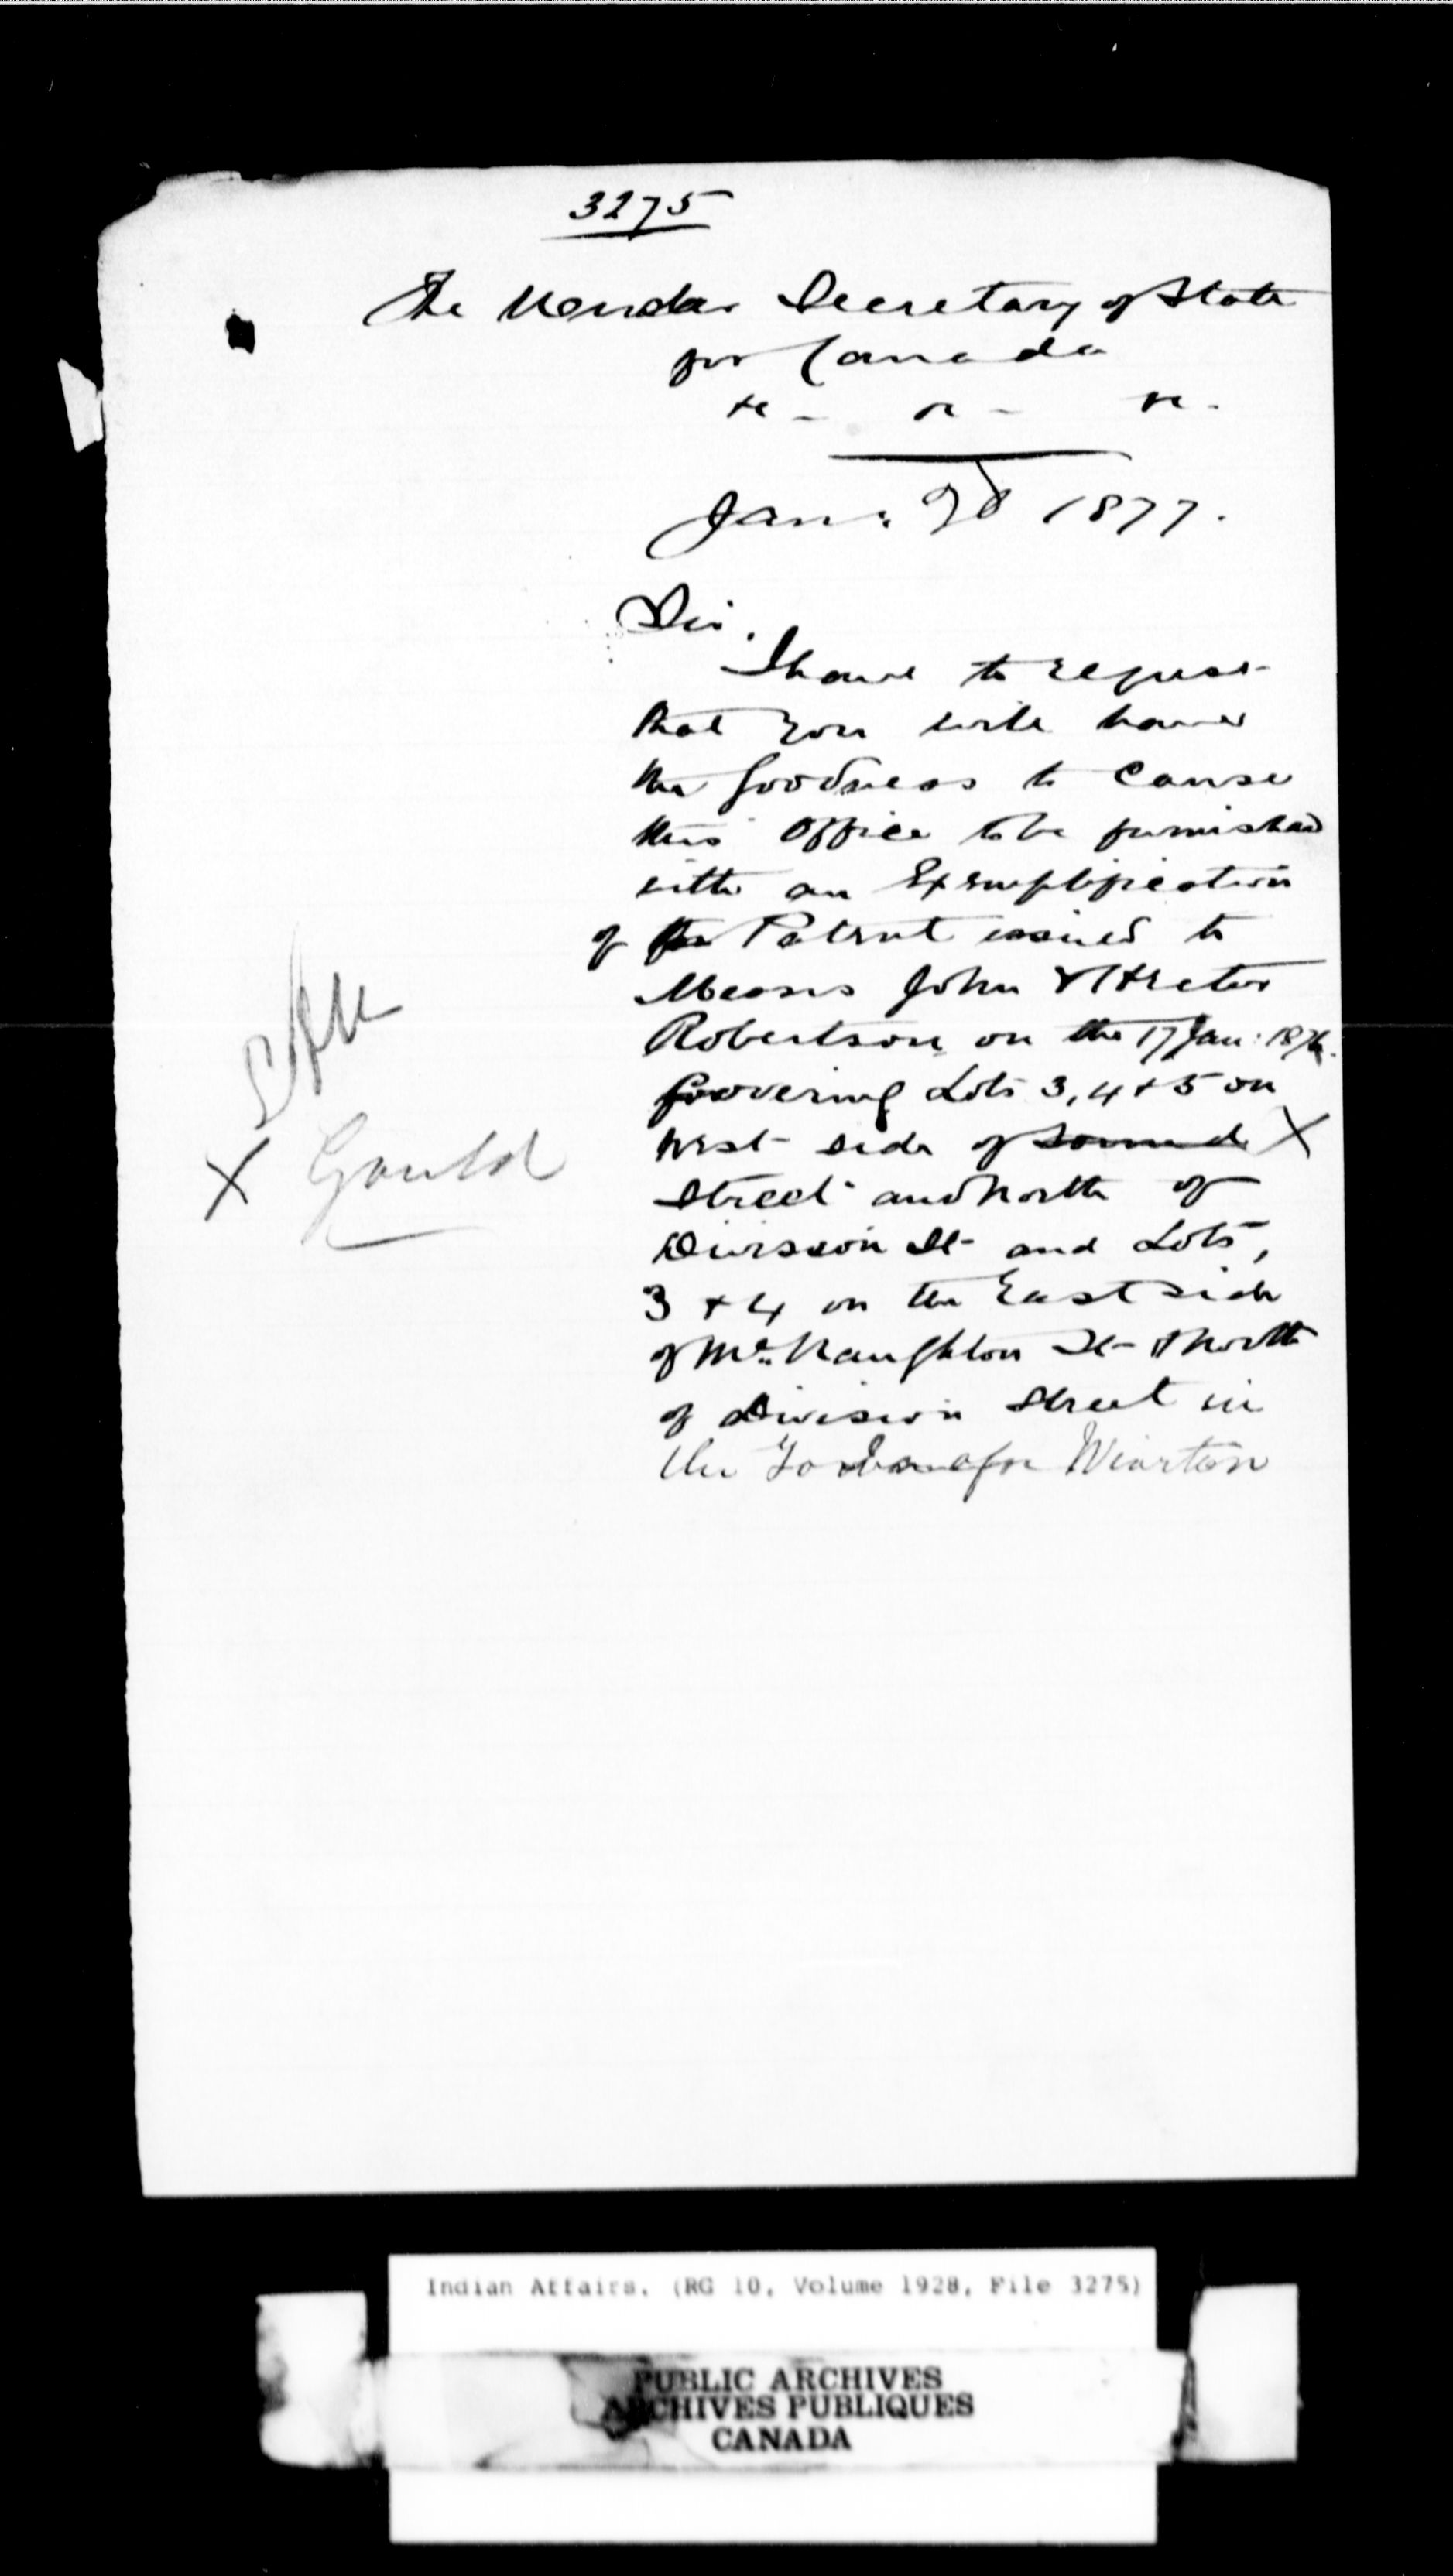 3275
The Under Secretary of State
for Canada
&c - &c - &c -
Jan: 1877.
Sir,
I have to request
that you will have
the goodness to cause
this office to be furnished
with an Exemplification
of the Patent issued to
Messrs John &
Robertson on the 17 Jan: 1876.
covering Lots 3, 4 + 5 on
West side of Sound X
X Gould
Street and North of
Division St and Lots,
3 + 4 on the East side
of McNaughton St & North
of Division Street in
the Wiarton
Indian Affairs. (RG 10, Volume 1928, File 3275)
PUBLIC ARCHIVES
ARCHIVES PUBLIQUES
CANADA